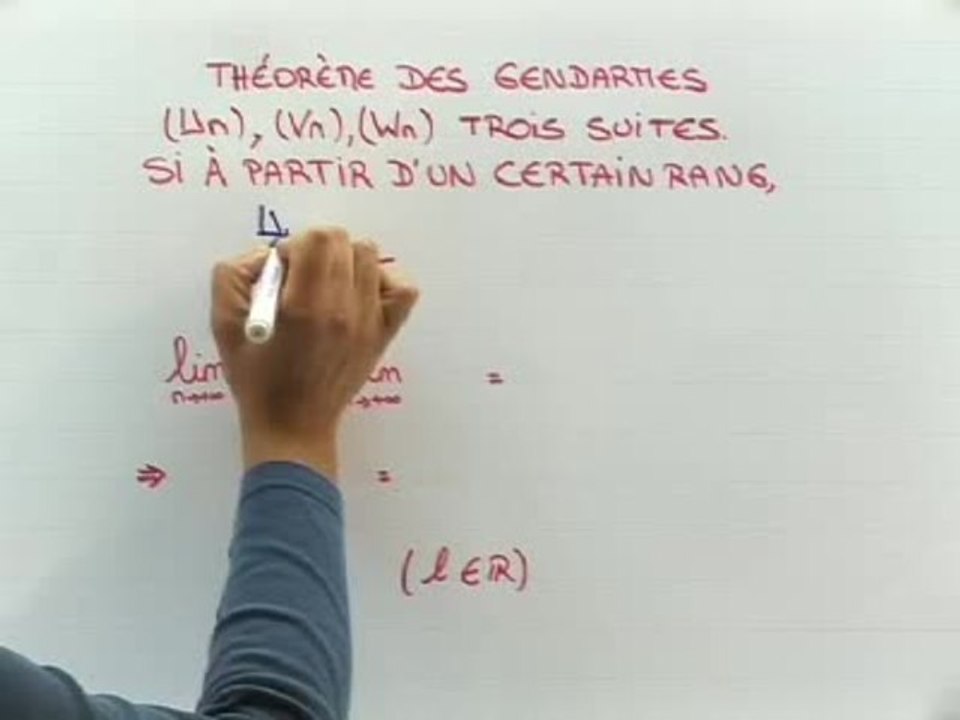 THÉORÈME DES GENDARMES
(Un), (Vn), (Wn) TROIS SUITES.
SI À PARTIR D'UN CERTAIN RANG,
U
lim =
n→+∞ →+∞
⇒ =
(l ∈ ℝ)